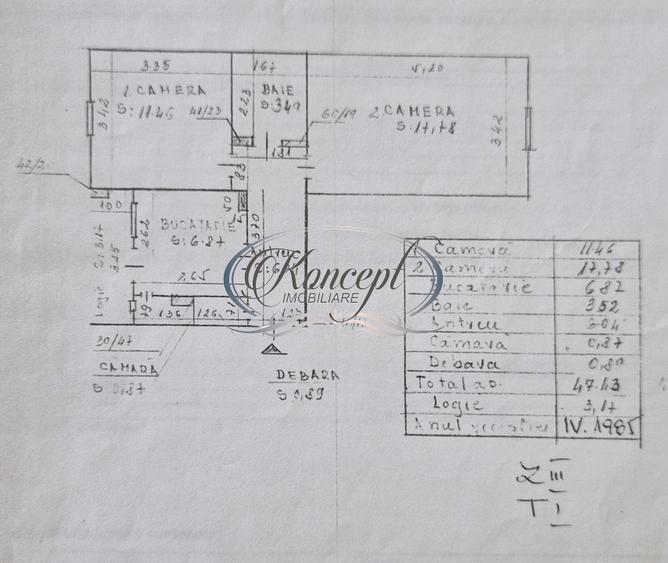 3.35 167 5,20
1. CAMERA
S: 11.46
BAIE
S: 3.49
2. CAMERA
S: 17,78
3.42 223 41/23 60/19 342
131
83
42/20
100
50
BUCATARIE
S: 6.87
2.62 370
Logie S: 3.17
3.25
2,65
79 136 126
30/47
CAMARA
S 0,87
DEBARA
S 0,89
Koncept
IMOBILIARE
1 Camera 11.46
2 Camera 17,78
Bucatarie 6.82
Baie 3.52
Antreu 6.04
Camara 0,87
Debara
Total ap. 47.43
Logie 3,17
Anul IV. 1985
Z III
T I